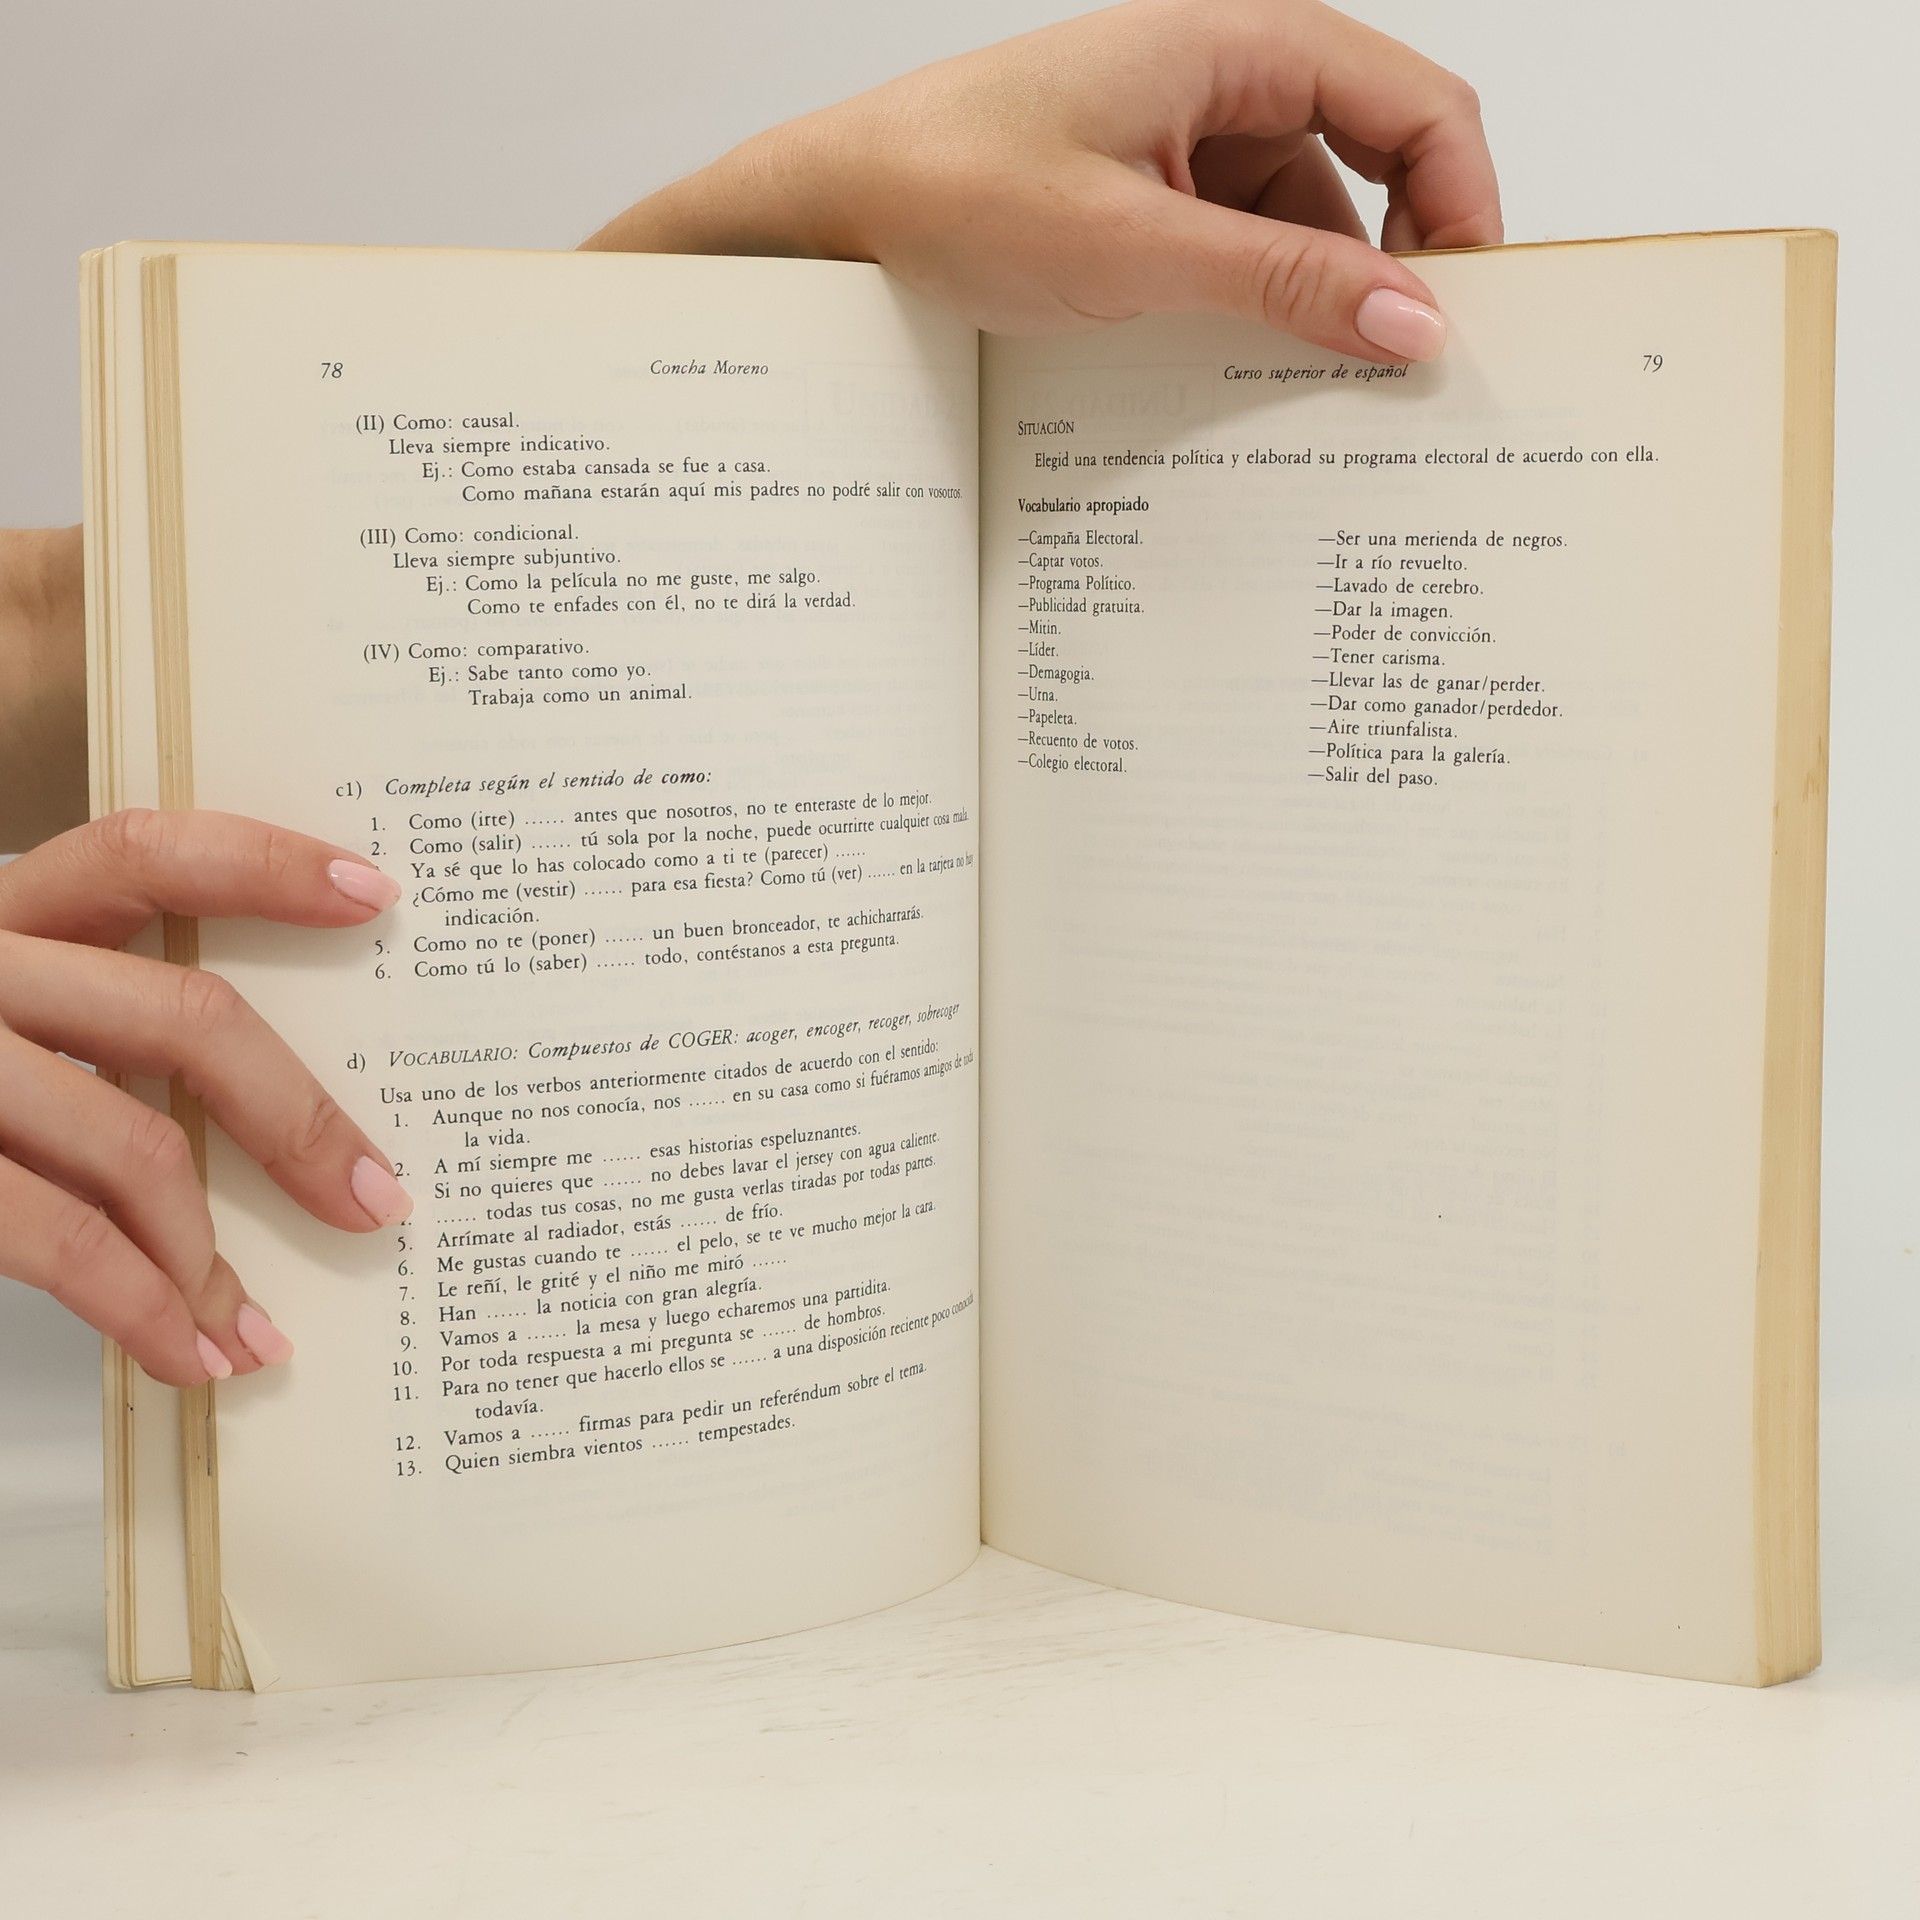 78
Concha Moreno
(II) Como: causal.
Lleva siempre indicativo.
Ej.: Como estaba cansada se fue a casa.
Como mañana estarán aquí mis padres no podré salir con vosotros.
(III) Como: condicional.
Lleva siempre subjuntivo.
Ej.: Como la película no me guste, me salgo.
Como te enfades con él, no te dirá la verdad.
(IV) Como: comparativo.
Ej.: Sabe tanto como yo.
Trabaja como un animal.
c1) Completa según el sentido de como:
1. Como (irte) ...... antes que nosotros, no te enteraste de lo mejor.
2. Como (salir) ...... tú sola por la noche, puede ocurrirte cualquier cosa mala.
Ya sé que lo has colocado como a ti te (parecer) ......
¿Cómo me (vestir) ...... para esa fiesta? Como tú (ver) ...... en la tarjeta no hay
indicación.
5. Como no te (poner) ...... un buen bronceador, te achicharrarás.
6. Como tú lo (saber) ...... todo, contéstanos a esta pregunta.
d) VOCABULARIO: Compuestos de COGER: acoger, encoger, recoger, sobrecoger
Usa uno de los verbos anteriormente citados de acuerdo con el sentido:
1. Aunque no nos conocía, nos ...... en su casa como si fuéramos amigos de toda
la vida.
2. A mí siempre me ...... esas historias espeluznantes.
Si no quieres que ...... no debes lavar el jersey con agua caliente.
...... todas tus cosas, no me gusta verlas tiradas por todas partes.
5. Arrímate al radiador, estás ...... de frío.
6. Me gustas cuando te ...... el pelo, se te ve mucho mejor la cara.
7. Le reñí, le grité y el niño me miró ......
8. Han ...... la noticia con gran alegría.
9. Vamos a ...... la mesa y luego echaremos una partidita.
10. Por toda respuesta a mi pregunta se ...... de hombros.
11. Para no tener que hacerlo ellos se ...... a una disposición reciente poco conocida
todavía.
12. Vamos a ...... firmas para pedir un referéndum sobre el tema.
13. Quien siembra vientos ...... tempestades.
Curso superior de español
79
SITUACIÓN
Elegid una tendencia política y elaborad su programa electoral de acuerdo con ella.
Vocabulario apropiado
—Campaña Electoral.
—Captar votos.
—Programa Político.
—Publicidad gratuita.
—Mitin.
—Líder.
—Demagogia.
—Urna.
—Papeleta.
—Recuento de votos.
—Colegio electoral.
—Ser una merienda de negros.
—Ir a río revuelto.
—Lavado de cerebro.
—Dar la imagen.
—Poder de convicción.
—Tener carisma.
—Llevar las de ganar/perder.
—Dar como ganador/perdedor.
—Aire triunfalista.
—Política para la galería.
—Salir del paso.